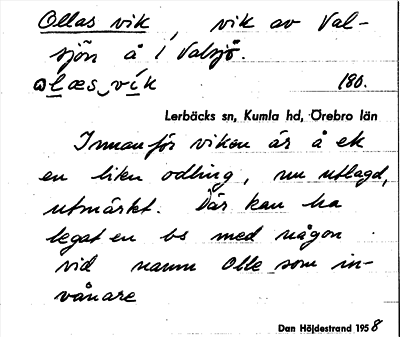 Ollas vik, vik av Val-
sjön å i Valsjö.
ɷlæs vík 180.
Lerbäcks sn, Kumla hd, Örebro län
Innanför viken är å ek
en liten odling, nu utlagd,
utmärkt. Där kan ha
legat en bs med någon
vid namn Olle som in-
vånare
Dan Höjdestrand 1958